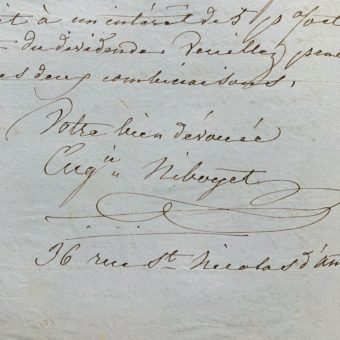 it à un intérêt de 5 p % et
du dividende. Veuillez pen
es deux combinaisons,
Votre bien dévouée
Eug ie Niboyet
36 rue St Nicolas d'An